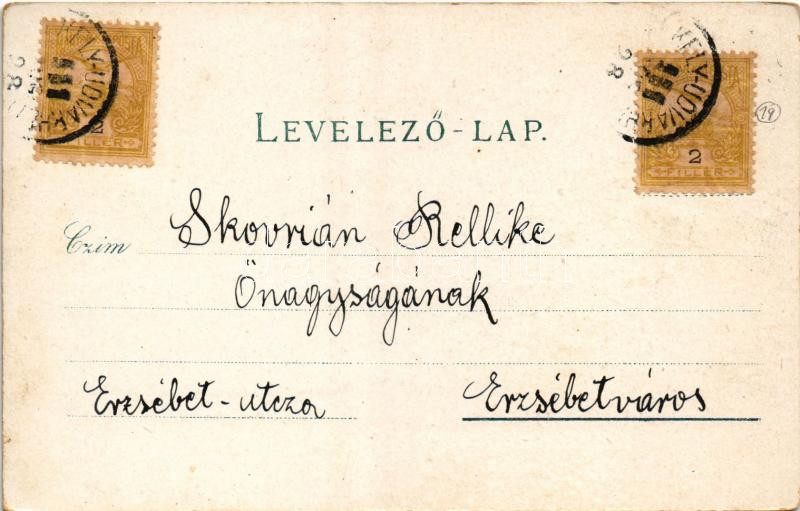 LEVELEZŐ-LAP.
2
FILLÉR
2
FILLÉR
19
Czim Skovrián Rellike
Őnagyságának
Erzsébet-utcza Erzsébetváros